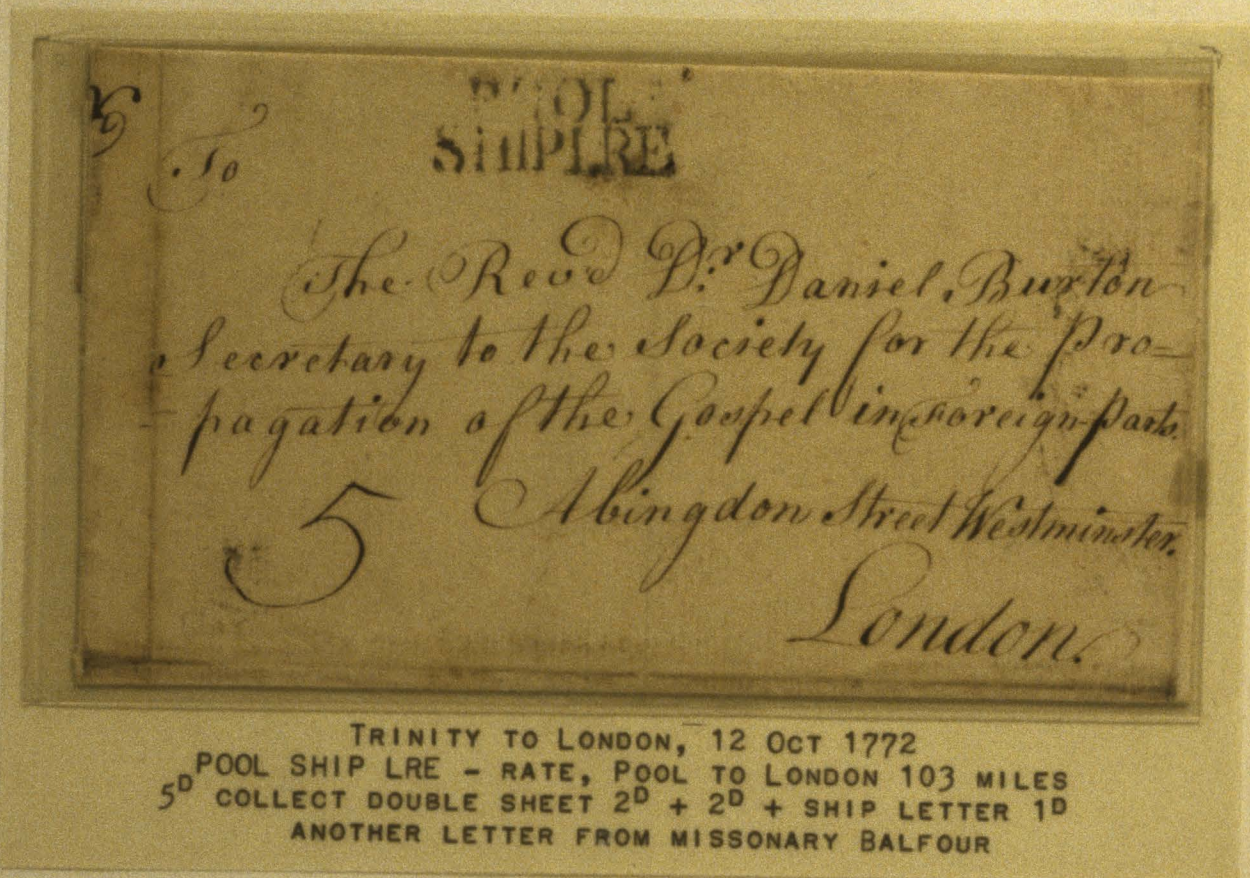 POOL
SHIPLRE
To
The Revd Dr. Daniel Burton
Secretary to the Society for the Pro=
pagation of the Gospel in Foreign Parts.
5 Abingdon Street Westminster.
London.
TRINITY TO LONDON, 12 OCT 1772
POOL SHIP LRE - RATE, POOL TO LONDON 103 MILES
5D COLLECT DOUBLE SHEET 2D + 2D + SHIP LETTER 1D
ANOTHER LETTER FROM MISSONARY BALFOUR